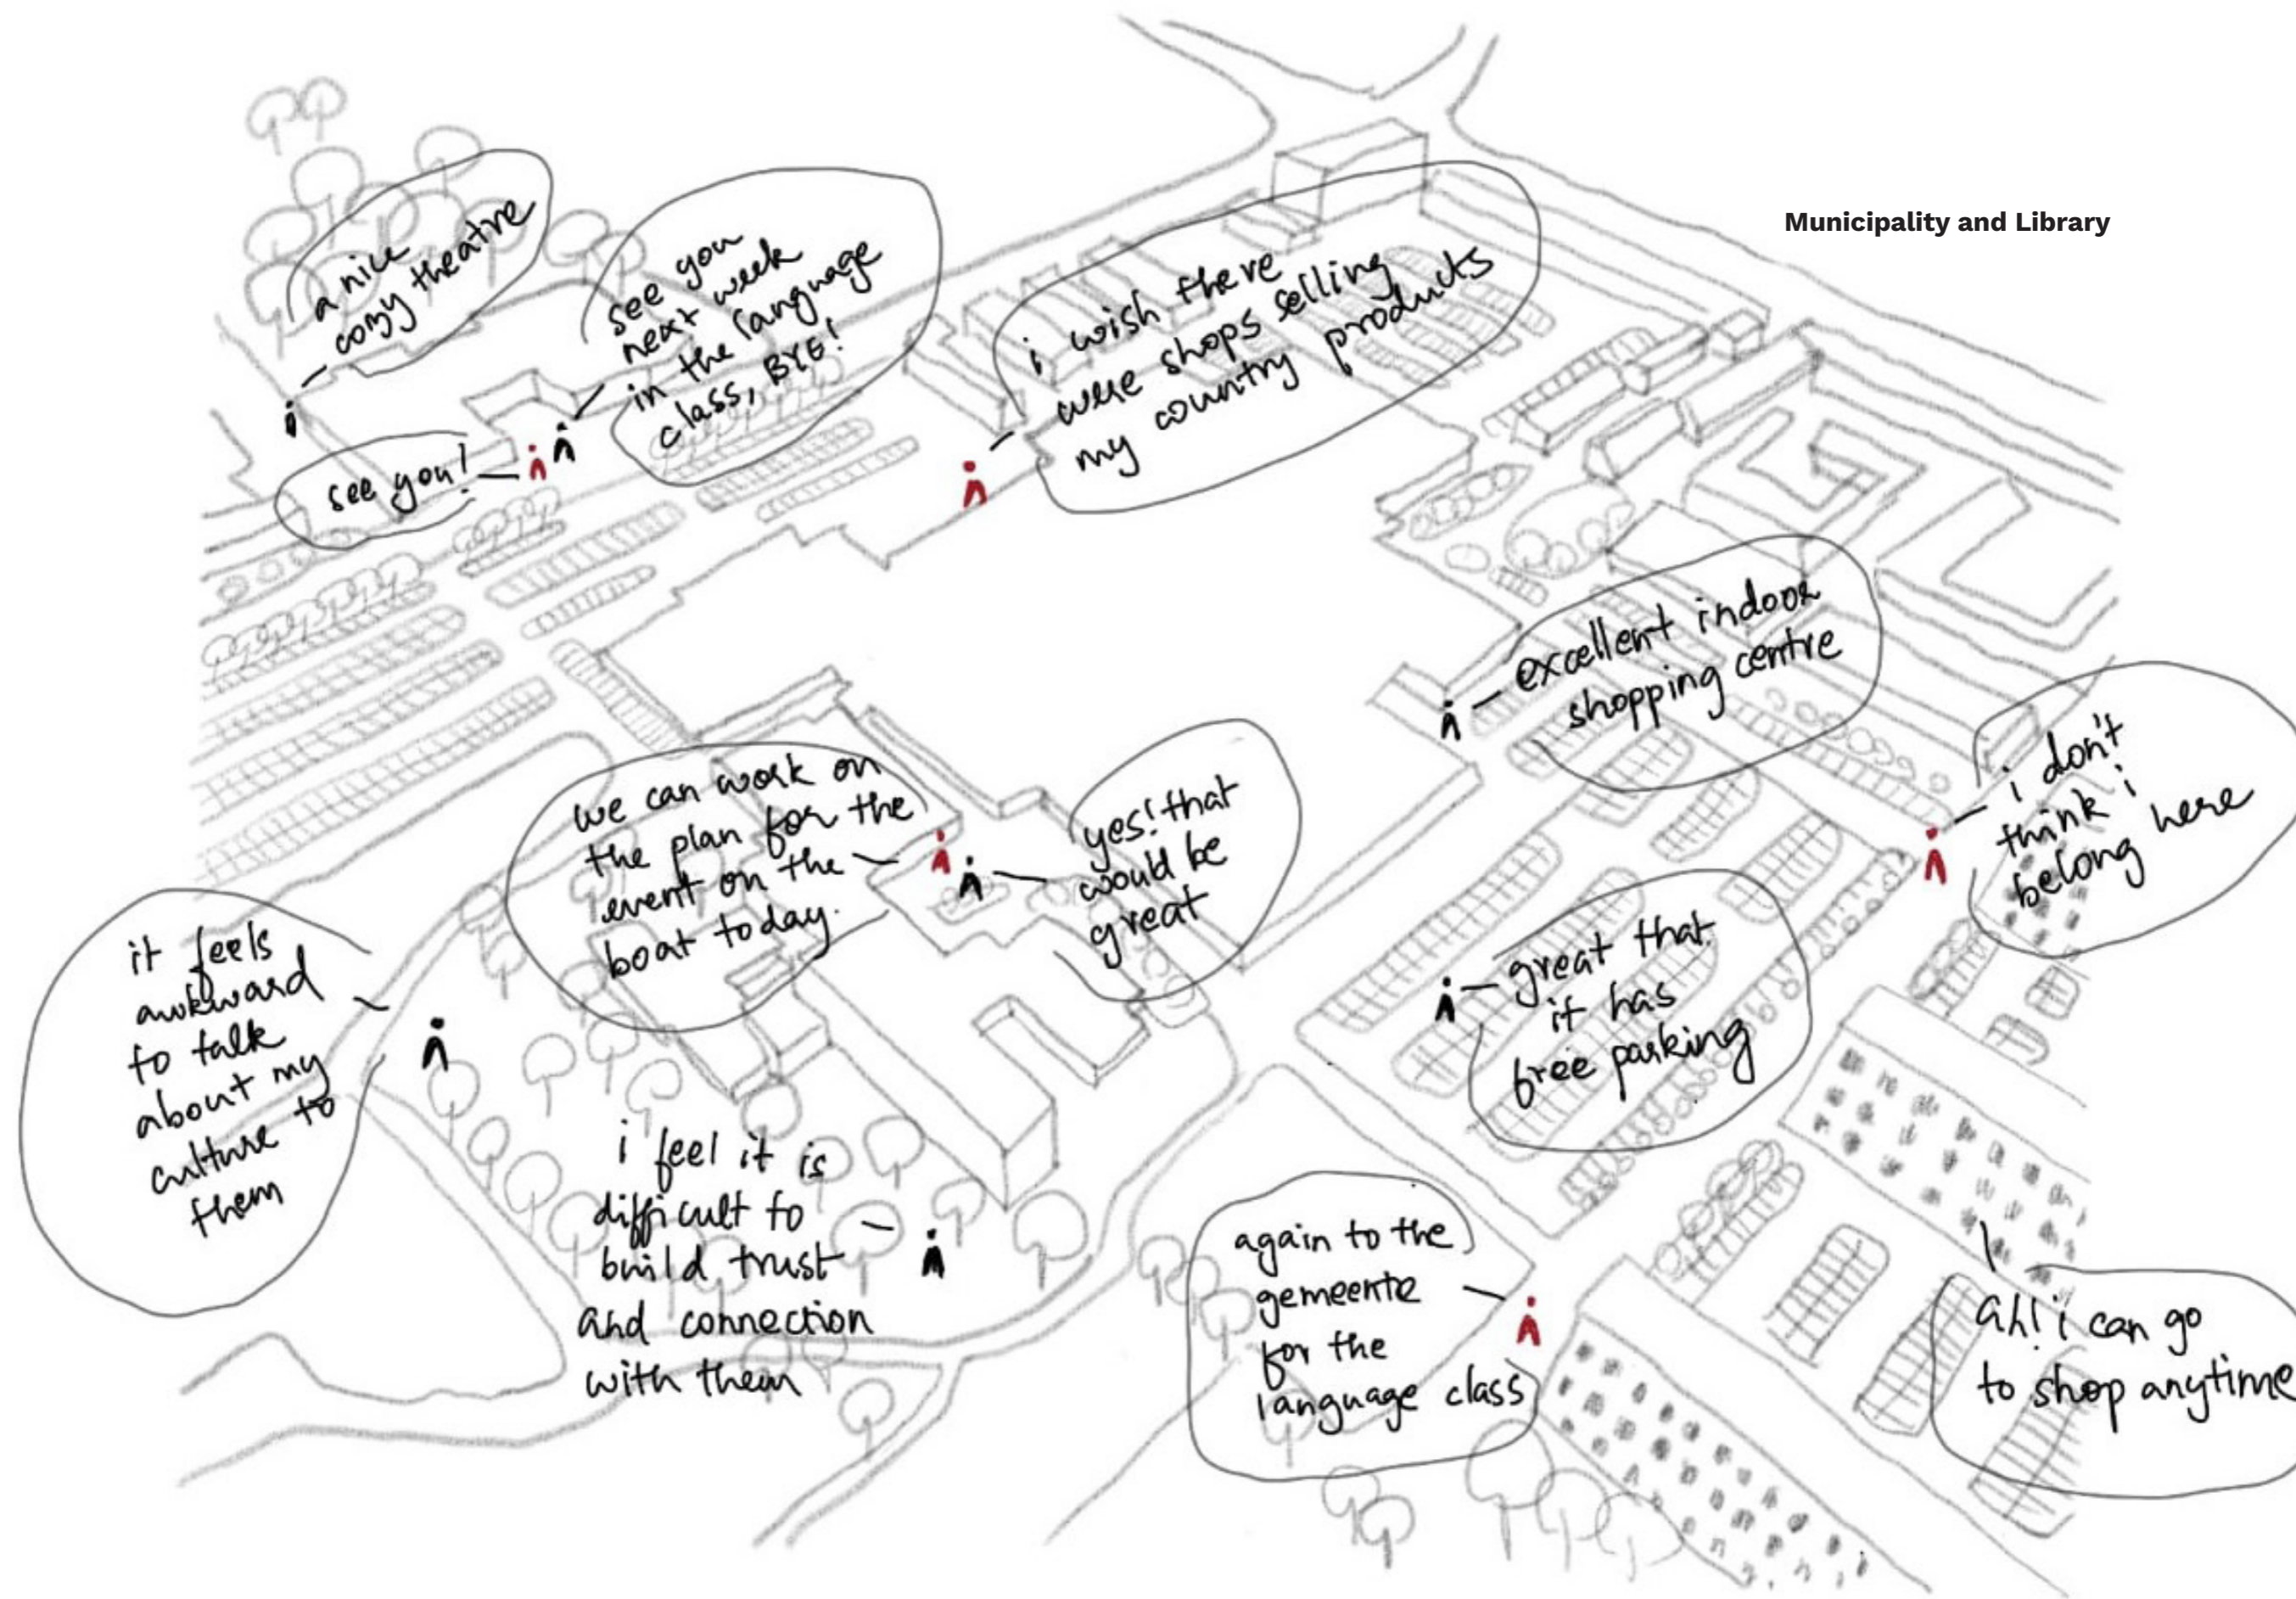 Municipality and Library
a nice
cozy theatre
see you
next week
in the language
class, BYE!
see you!
i wish there
were shops selling
my country products
excellent indoor
shopping centre
i don't
think i
belong here
we can work on
the plan for the
event on the
boat today.
yes! that
would be
great
great that
it has
free parking
it feels
awkward
to talk
about my
culture to
them
i feel it is
difficult to
build trust
and connection
with them
again to the
gemeente
for the
language class
ah! i can go
to shop anytime